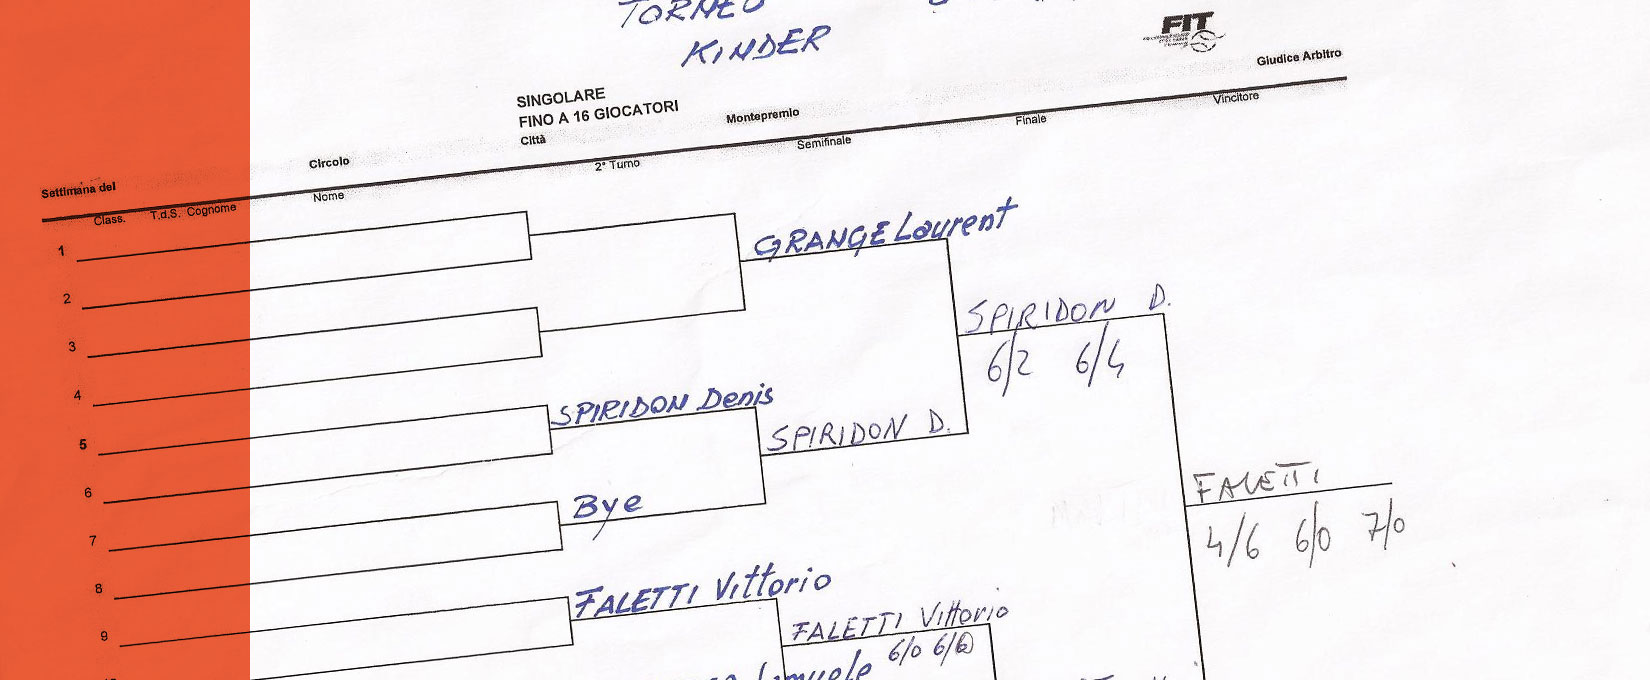 TORNEO
KINDER
FIT
Giudice Arbitro
SINGOLARE
FINO A 16 GIOCATORI
Città
Montepremio
Circolo
Settimana del
Class. T.d.S. Cognome
Nome
2° Turno
Semifinale
Finale
Vincitore
1
2
3
4
5
6
7
8
9
GRANGE Laurent
SPIRIDON D.
6/2 6/4
SPIRIDON Denis
SPIRIDON D.
Bye
FALETTI
4/6 6/0 7/0
FALETTI Vittorio
FALETTI Vittorio
6/0 6/0